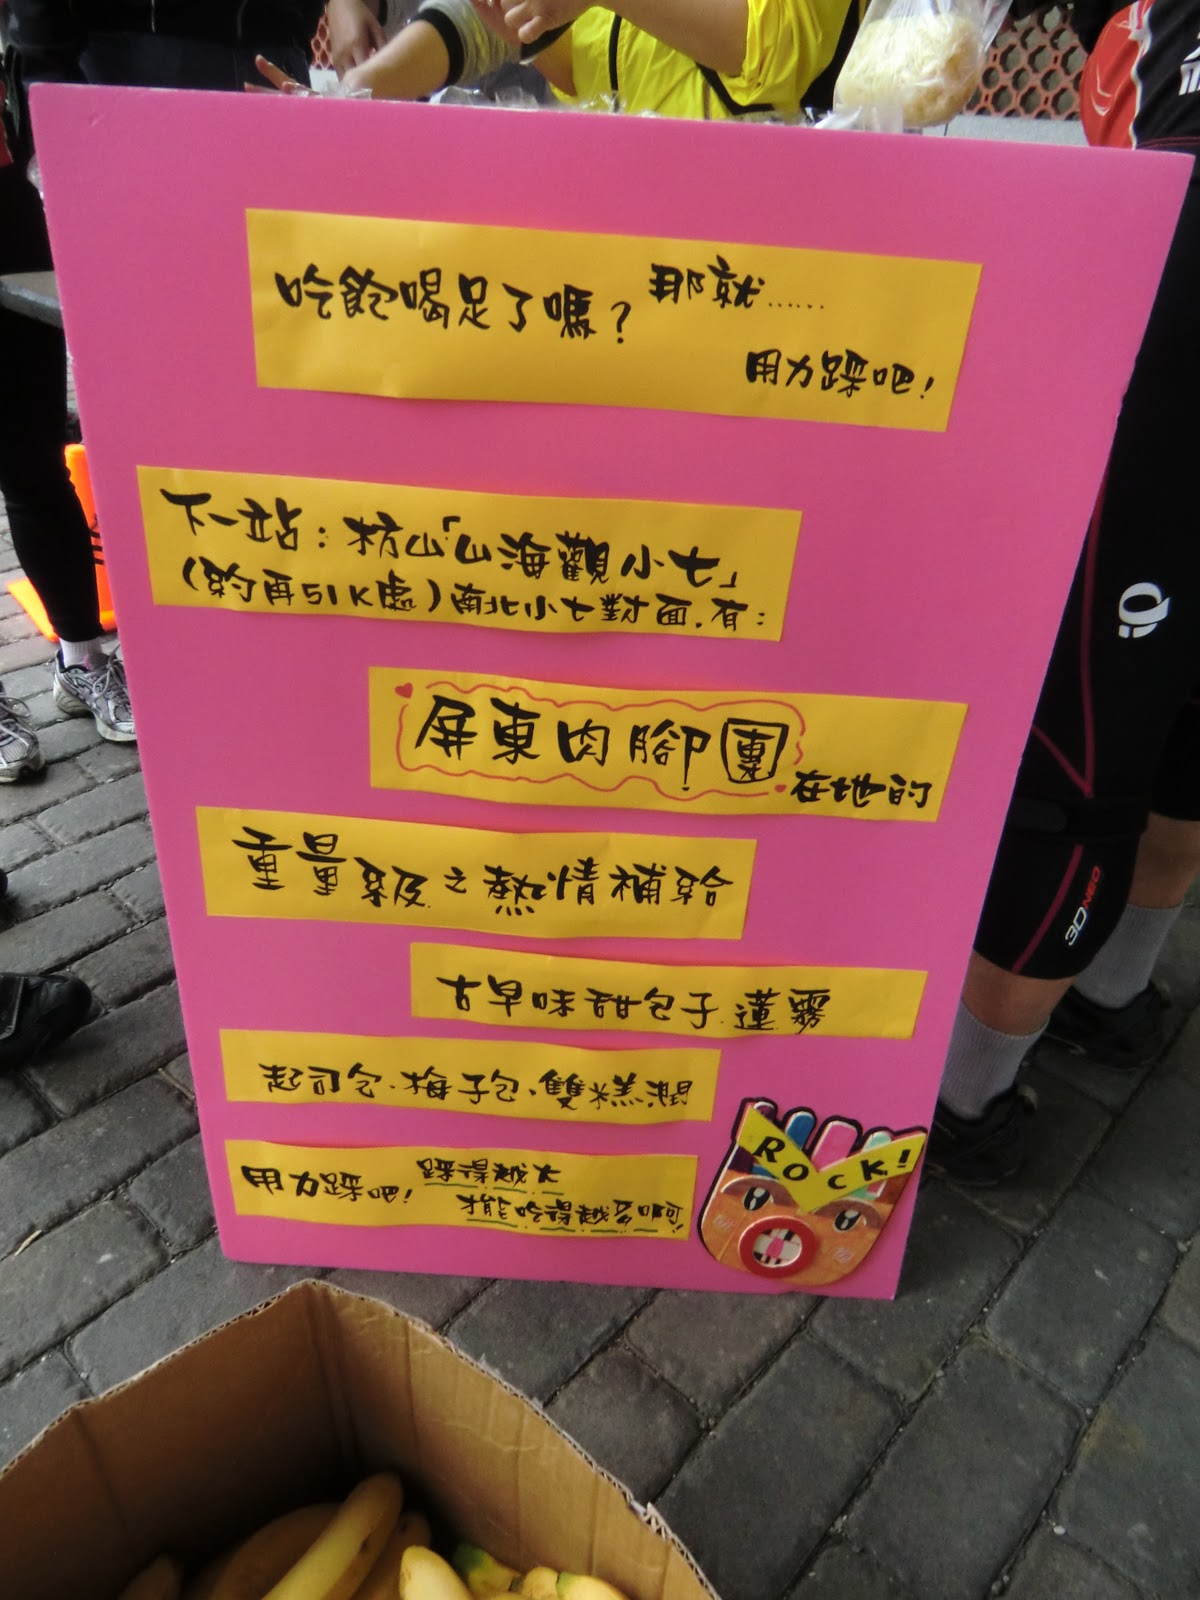 吃飽喝足了嗎？那就……
用力踩吧！
下一站：枋山「山海觀小七」
（約再51K處）南北小七對面．有：
屏東肉腳團在地的
重量級之熱情補給
古早味甜包子．蓮霧
起司包、梅子包、雙糕潤
用力踩吧！踩得越大
才能吃得越多啊！
ROCK!
3D NEO